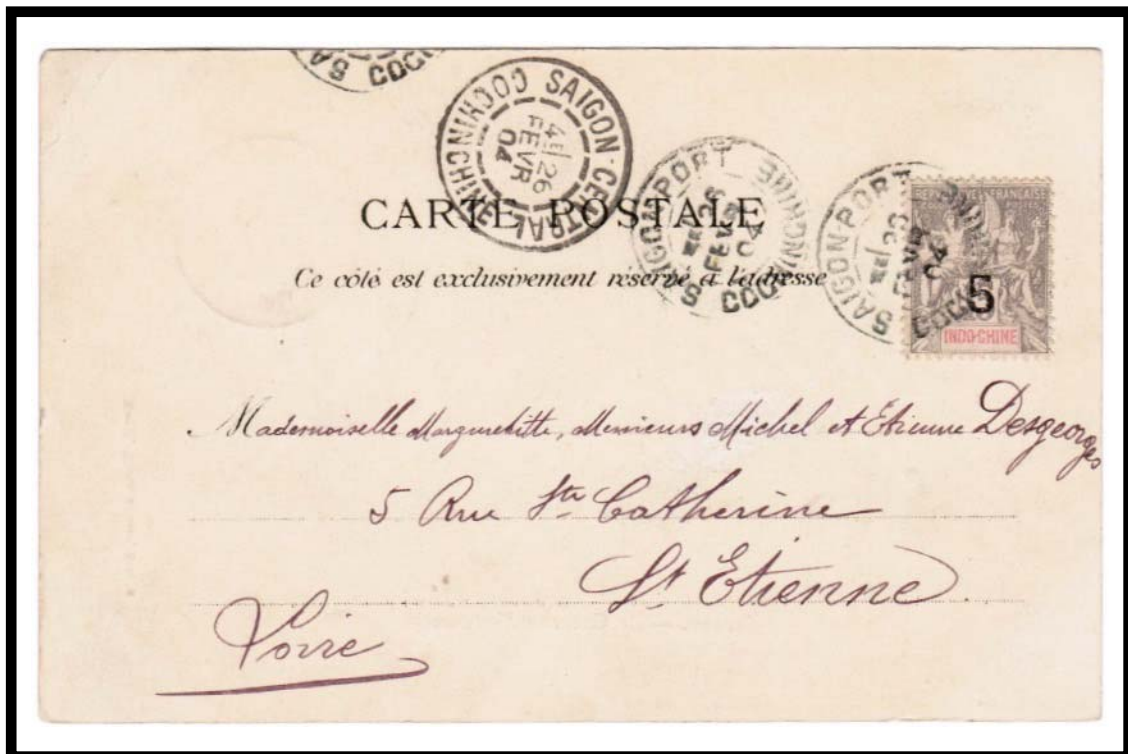 SA COCH
SAIGON-CENTRAL COCHINCHINE
4E 26
FEVR
04
SAIGON-PORT COCHINCHINE
26
FEVR
04
SAIGON-PORT COCHINCHINE
26
FEVR
04
5
INDO-CHINE
CARTE POSTALE
Ce côté est exclusivement réservé à l'adresse
Mademoiselle Marguerite, Messieurs Michel et Etienne Desgeorges
5 Rue Ste Catherine
St Etienne.
Loire